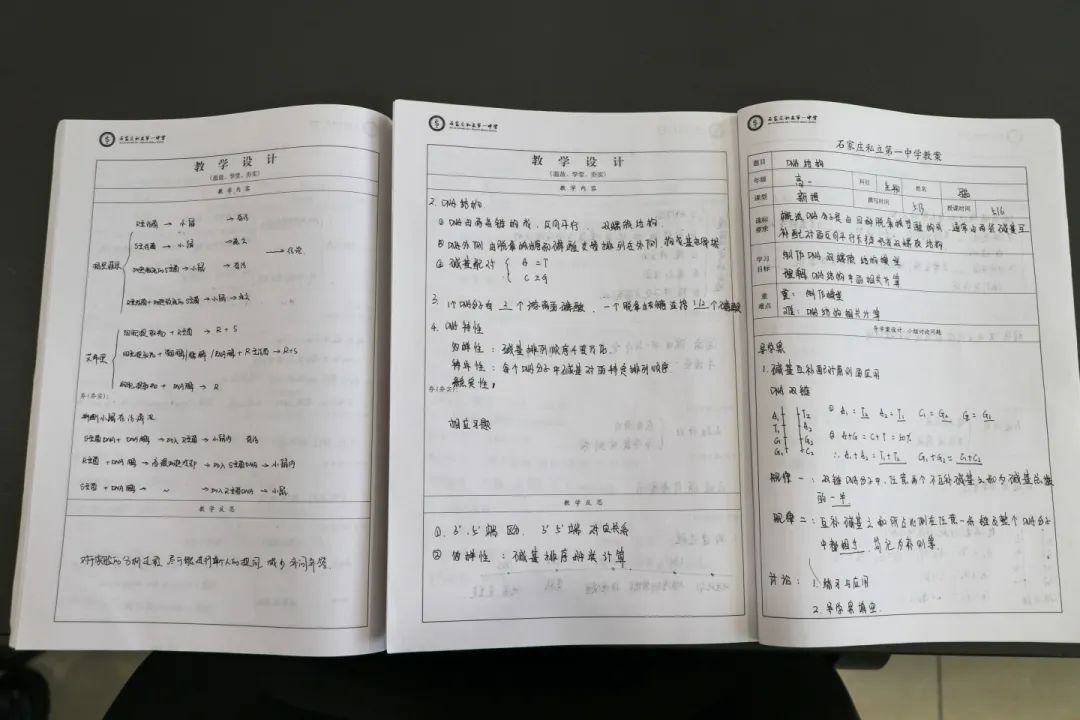 石家庄私立第一中学
教 学 设 计
(温故、学堂、夯实)
教 学 内 容
R型活菌 → 小鼠 → 存活
S型活菌 → 小鼠 → 死亡
→ 结论
加热致死的S型菌 → 小鼠 → 存活
R型活菌 + 加热致死的S型菌 → 小鼠 → 死亡
艾弗里
细胞提取物 + R型菌 → R + S
+ R型活菌 → R+S
细胞提取物 + DNA酶 → R
夯(夯实):
判断小鼠存活情况
S型菌DNA + DNA酶 → 加入R型菌 → 小鼠内 存活
R型菌 + DNA酶 → 高温加热冷却 → 加入S型菌DNA → 小鼠内
S型菌 + DNA酶 → ~ → 加入R型菌DNA → 小鼠
教 学 反 思
石家庄私立第一中学
教 学 设 计
(温故、学堂、夯实)
教 学 内 容
2. DNA 结构
① DNA由两条链构成,反向平行,双螺旋结构
② DNA外侧由脱氧核糖和磷酸交替排列在外侧,构成基本骨架
③ 碱基配对 A = T
C ≡ G
3. 1个DNA分子有 2 个游离的磷酸,一个脱氧核糖连接 1/2 个磷酸
4. DNA 特性
多样性:碱基排列顺序千变万化
特异性:每个DNA分子中碱基对的特定排列顺序
稳定性:
夯(夯实):
相应习题
教 学 反 思
①. 3'.5'端 区别. 3' 5'端 对应关系
② 多样性:碱基排序种类计算
石家庄私立第一中学
石家庄私立第一中学教案
题目 DNA 结构
年级 高一 科目 生物 姓名
课型 新授 撰写时间 5.13 授课时间 5.16
课标要求 概述DNA分子是由四种脱氧核苷酸构成,通常由两条碱基互
补配对的反向平行长链形成双螺旋结构
学习目标 制作DNA双螺旋结构模型
理解DNA结构中的相关计算
重难点 重:制作模型
难:DNA结构相关计算
导学案设计、小组讨论问题
导学案
1. 碱基互补配对原则的应用
DNA 双链
A₁ T₂ ① A₁ = T₂ A₂ = T₁ C₁ = G₂ G₁ = C₂
T₁ A₂
C₁ G₂ ② A+G = C+T = 50%
G₁ C₂ ∴ A₁+A₂ = T₁+T₂ G₁+G₂ = C₁+C₂
规律一:双链DNA分子中,任意两个不互补碱基之和为碱基总数
的一半
规律二:互补碱基之和所占比例在任意一条链及整个DNA分子
中都相等,简记为补则等
讨论:1. 练习与应用
2. 导学案填空.